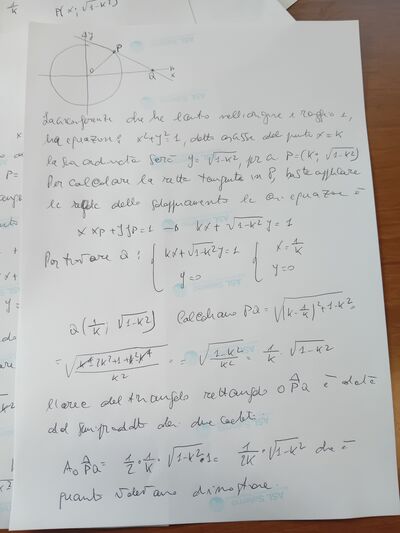 1/k P(x; √1-k²)
y
P
O
Q
x
La circonferenza che ha centro nell'origine e raggio 1,
ha equazione: x²+y²=1, detta ascissa del punto x=k
la sua ordinata sarà y= √1-k², per cui P=(k; √1-k²)
Per calcolare la retta tangente in P, basta applicare
le regole dello sdoppiamento la cui equazione è
x xp + y yp = 1 → kx + √1-k² y = 1
Per trovare Q: { kx + √1-k² y = 1 { x = 1/k
y=0 y=0
Q(1/k; √1-k²) Calcoliamo PQ = √(k - 1/k)² + 1-k² =
= √(k⁴-2k²+1+k²-k⁴)/k² = = √(1-k²)/k² = 1/k · √1-k²
L'area del triangolo rettangolo OPQ è data
dal semiprodotto dei due cateti.
A OPQ = 1/2 · 1/k · √1-k² · 1 = 1/2k · √1-k² che è
quanto volevamo dimostrare.